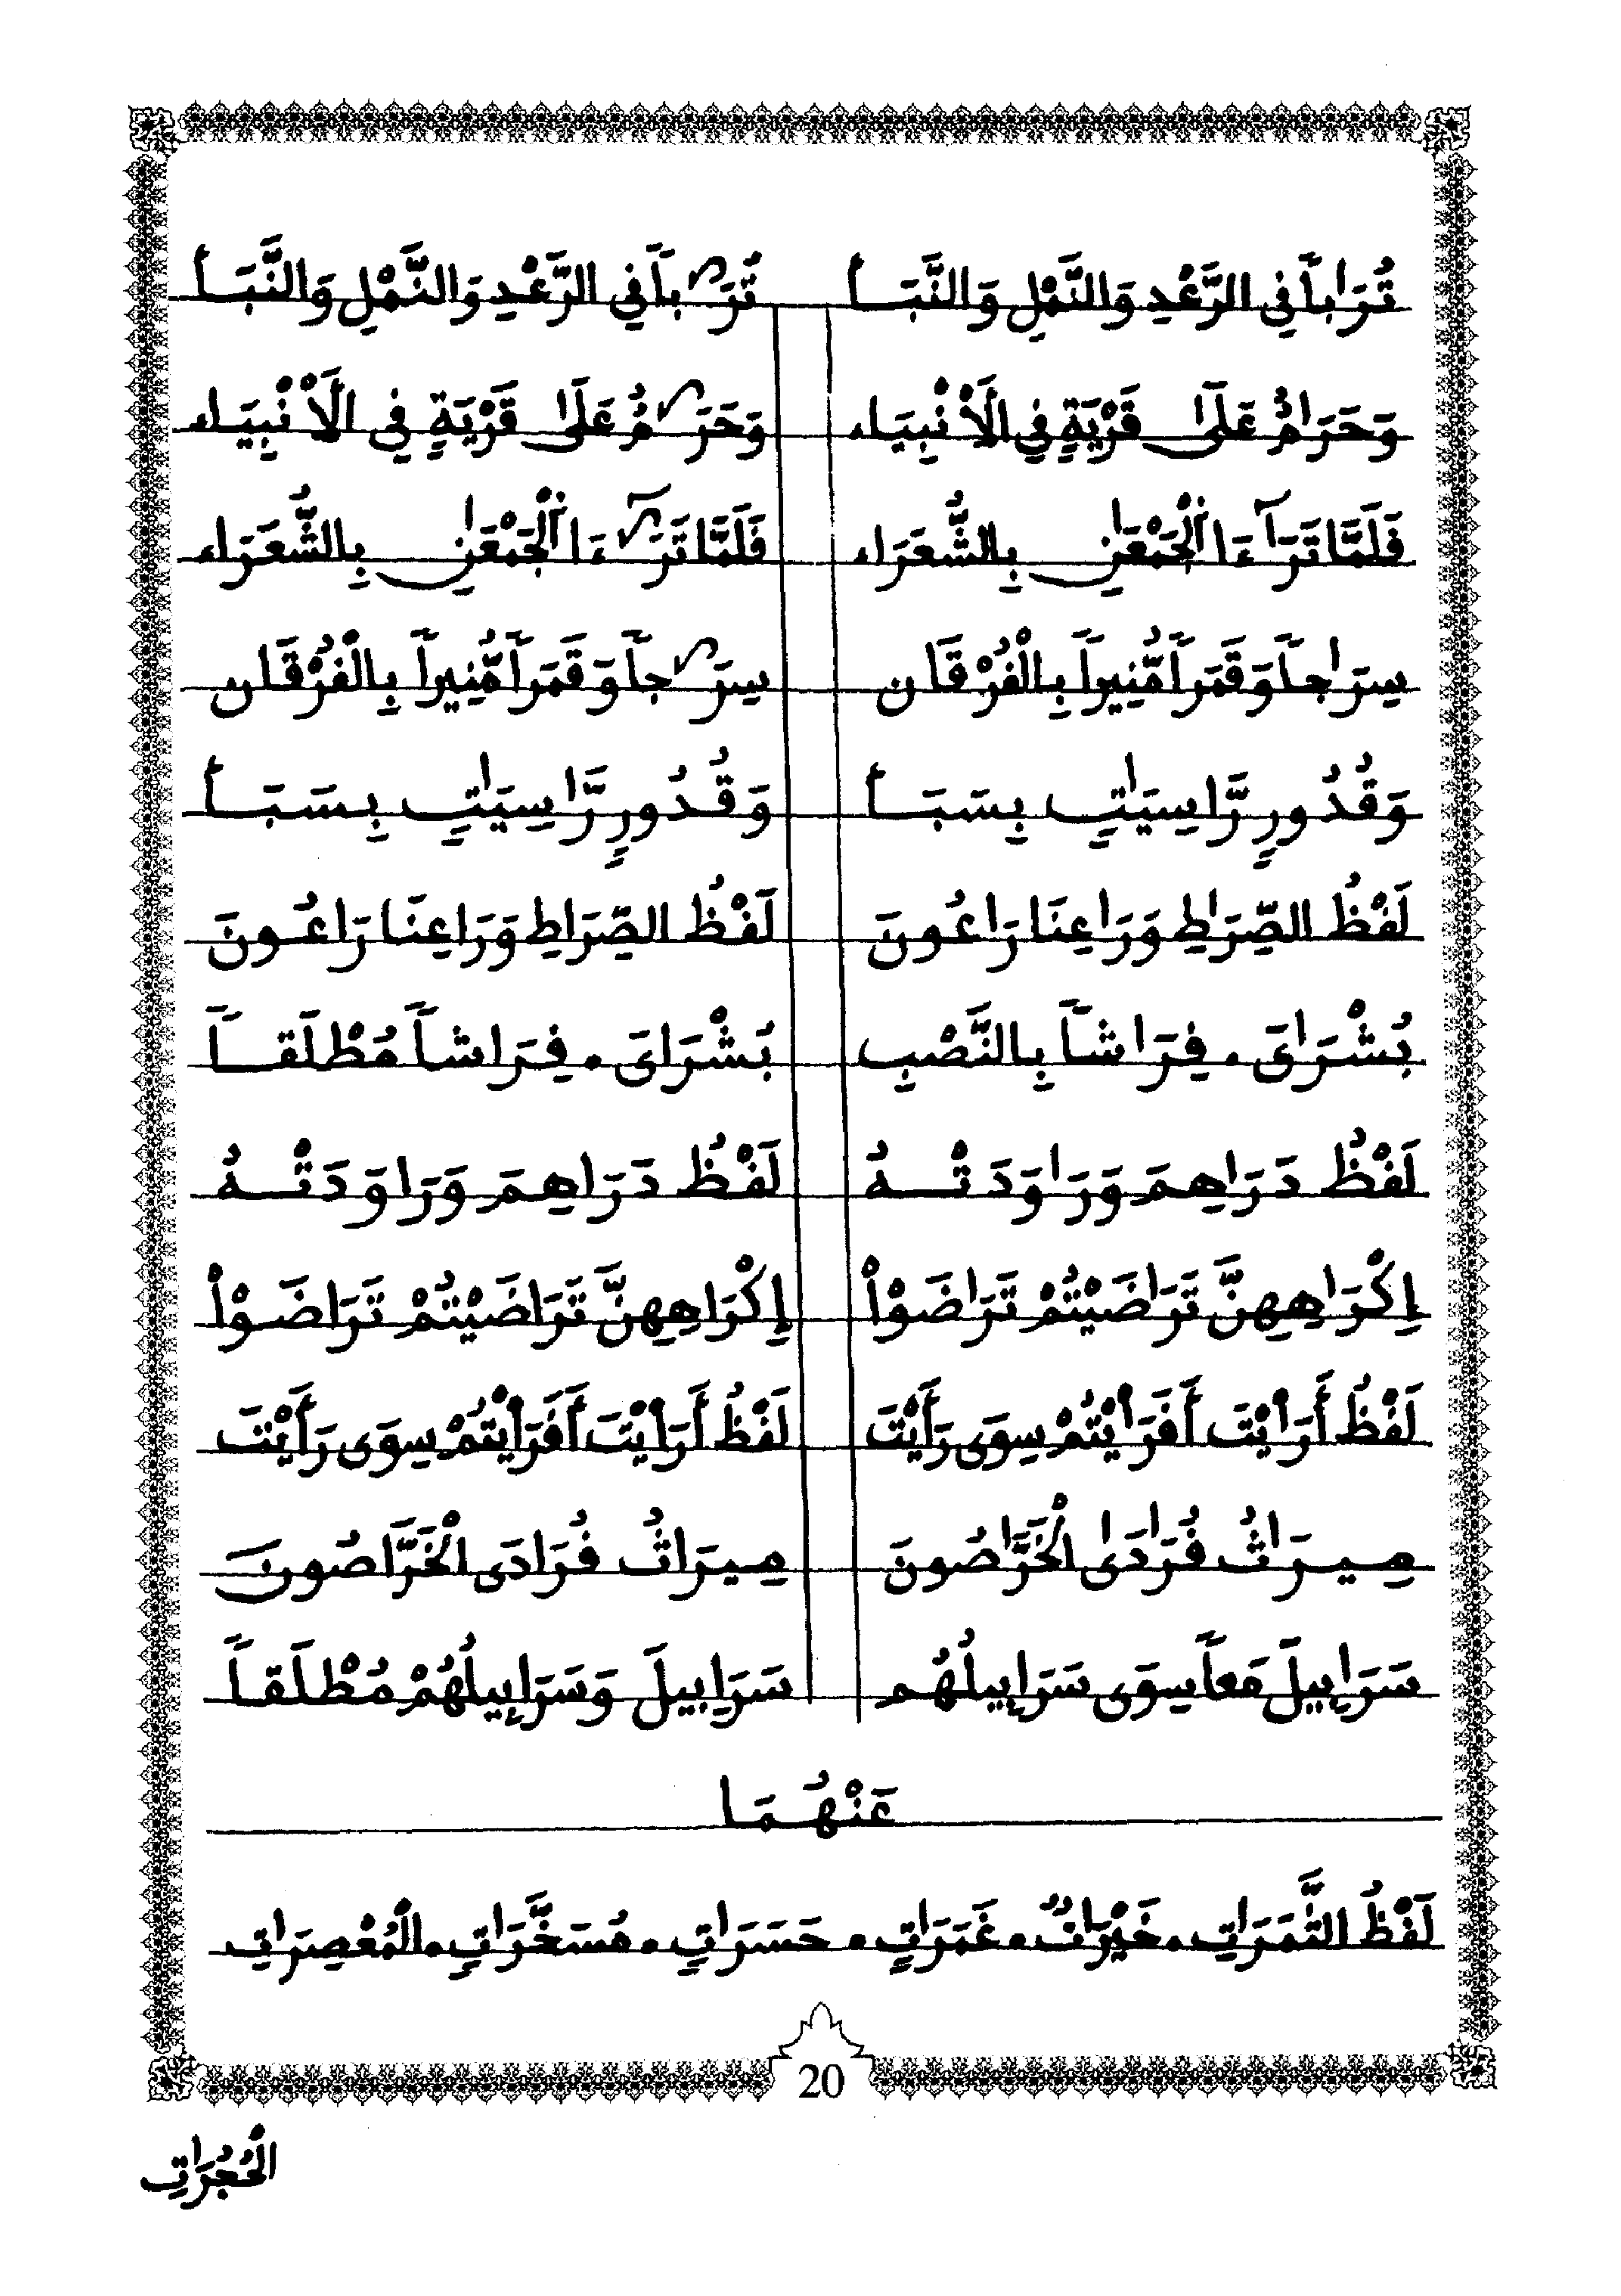 تُرَٰباً فِي الرَّعْدِ وَالنَّمْلِ وَالنَّبَأ تُرَباً فِي الرَّعْدِ وَالنَّمْلِ وَالنَّبَأ
وَحَرَٰمٌ عَلَىٰ قَرْيَةٍ فِي الَأنْبِيَاء وَحَرَمٌ عَلَىٰ قَرْيَةٍ فِي الَأنْبِيَاء
فَلَمَّا تَرَٰٓءَا اَلْجَمْعَٰنِ بِالشُّعَرَاء فَلَمَّا تَرَءَا اَلْجَمْعَٰنِ بِالشُّعَرَاء
سِرَٰجاً وَقَمَراً مُّنِيراً بِالْفُرْقَان سِرَجاً وَقَمَراً مُّنِيراً بِالْفُرْقَان
وَقُدُورٍ رَّاسِيَٰتٍ بِسَبَأ وَقُدُورٍ رَّاسِيَٰتٍ بِسَبَأ
لَفْظُ الصِّرَٰطِ وَرَٰعِنَا رَٰعُونَ لَفْظُ الصِّرَاطِ وَرَاعِنَا رَاعُونَ
بُشْرَٰىَ . فِرَٰشاً بِالنَّصْبِ بُشْرَاىَ . فِرَاشاً مُطْلَقاً
لَفْظُ دَرَٰهِمَ وَرَٰوَدَتْهُ لَفْظُ دَرَاهِمَ وَرَاوَدَتْهُ
إِكْرَٰهِهِنَّ تَرَٰضَيْتُمْ تَرَٰضَوْاْ إِكْرَاهِهِنَّ تَرَاضَيْتُمْ تَرَاضَوْاْ
لَفْظُ أَرَٰيْتَ أَفَرَٰيْتُمْ سِوَى رَأَيْتَ لَفْظُ أَرَاْيْتَ أَفَرَاْيْتُمْ سِوَى رَأَيْتَ
مِيرَٰثُ فُرَٰدَىٰ الْخَرَّٰصُونَ مِيرَاثُ فُرَادَى الْخَرَّاصُونَ
سَرَٰبِيلَ مَعاً سِوَى سَرَٰبِيلُهُم سَرَابِيلَ وَسَرَابِيلُهُمْ مُطْلَقاً
عَنْهُمَا
لَفْظُ الثَّمَرَٰتِ . خَيْرَٰتٌ . غَمَرَٰتِ . حَسَرَٰتٍ . مُسَخَّرَٰتٍ . الْمُعْصِرَٰتِ
20
الْحُجُرَٰتِ